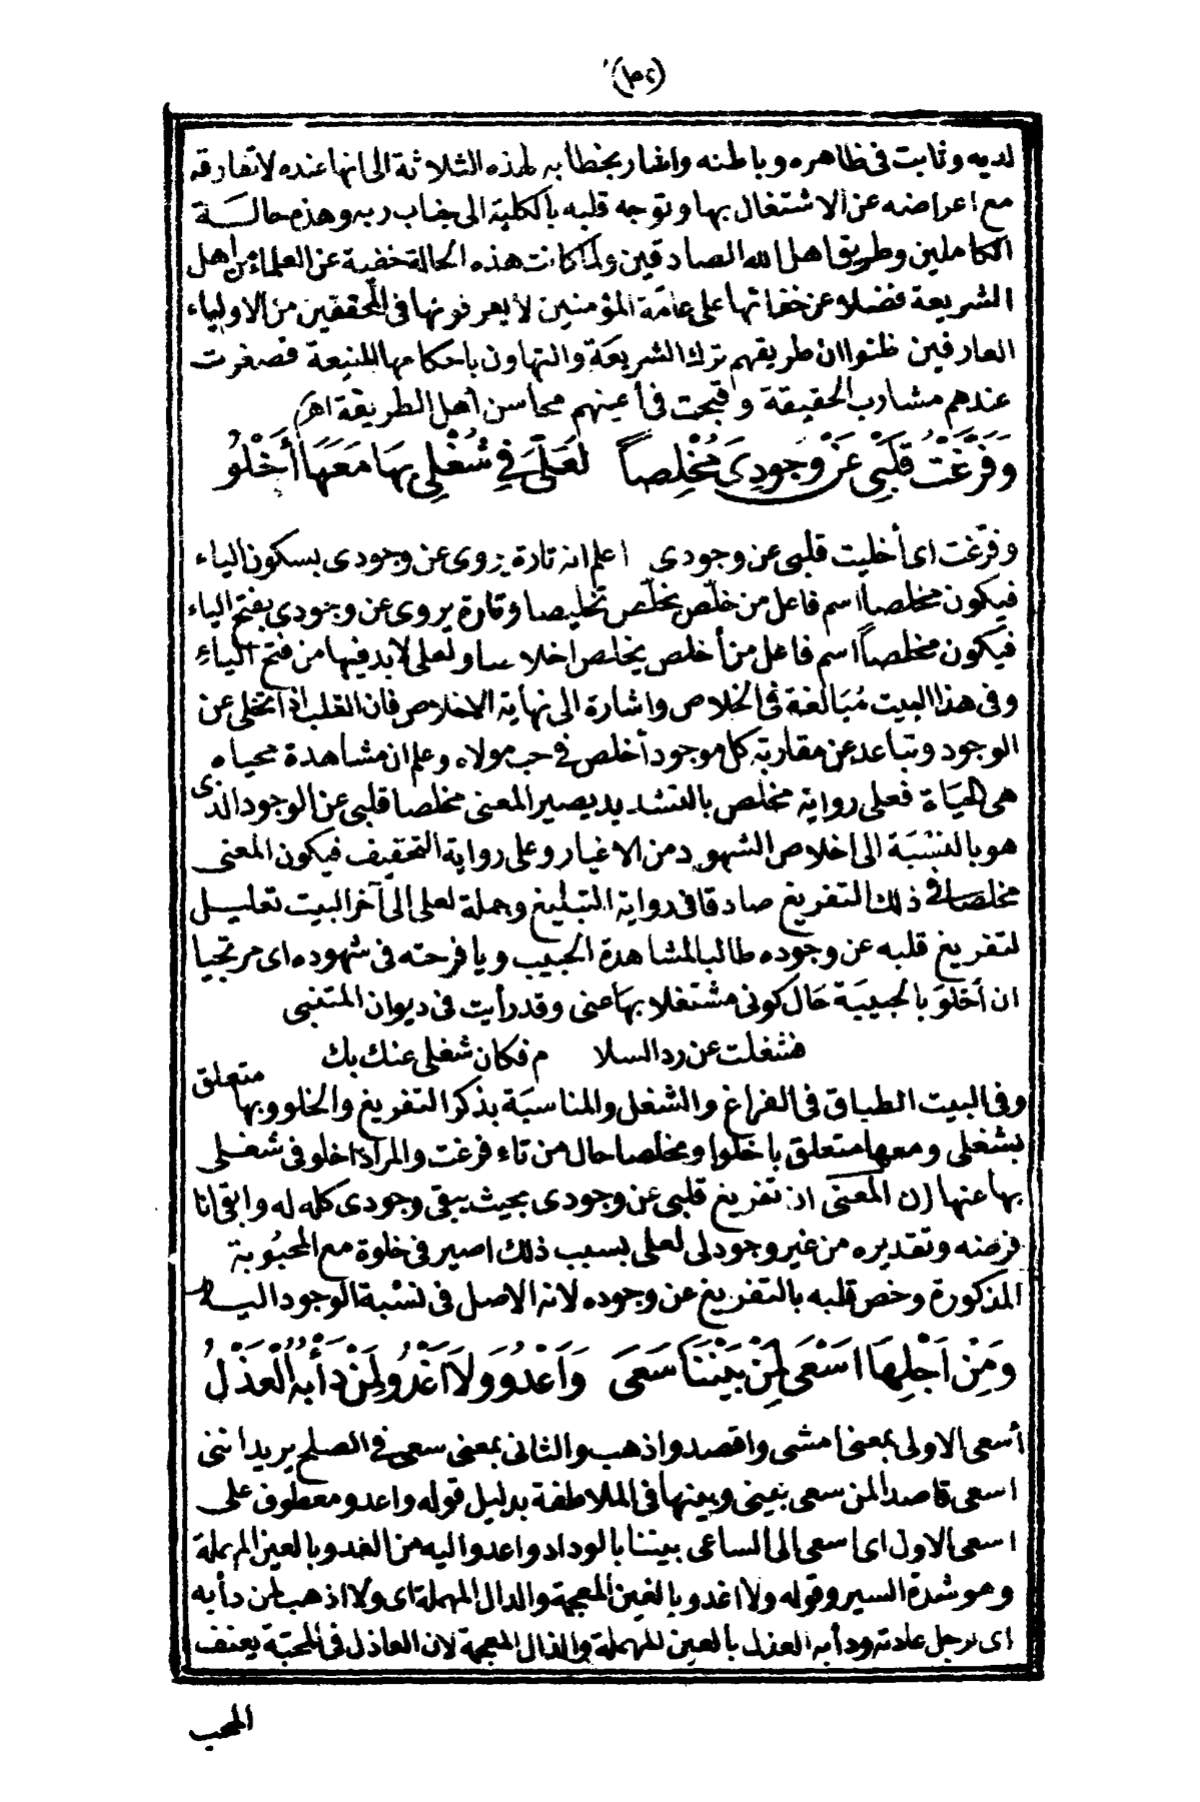 لديه وثابت فى ظاهره وباطنه واشار بخطابه لهذه الثلاثة الى انها عنده لا تفارقه
مع اعراضه عن الاشتغال بها وتوجه قلبه بالكلية الى جناب ربه وهذه حالة
الكاملين وطريق اهل الله الصادقين ولما كانت هذه الحالة خفية عن العلماء من اهل
الشريعة فضلا عن خفائها على عامة المؤمنين لا يعرفونها فى المحققين من الاولياء
العارفين ظنوا ان طريقهم ترك الشريعة والتهاون باحكامها المنيعة فصغرت
عندهم مشارب الحقيقة وقبحت فى أعينهم محاسن أهل الطريقة اهـ
وَفَرَّغْتُ قَلْبِى عَنْ وُجُودِىَ مُخْلِصاً لَعَلِّىَ فِى شُغْلِى بِهَا مَعَهَا أَخْلُو
وفرّغت اى أخليت قلبى عن وجودى اعلم انه تارة يروى عن وجودى بسكون الياء
فيكون مخلصاً اسم فاعل من خلّص يخلّص تخليصا وتارة يروى عن وجودى بفتح الياء
فيكون مخلصاً اسم فاعل من أخلص يخلص اخلاصا ولعلى لا بد فيها من فتح الياء
وفى هذا البيت مُبَالغة فى الخلاص واشارة الى نهاية الاخلاص فان القلب اذا تخلى عن
الوجود وتباعد عن مقاربة كل موجود أخلص فى حب مولاه وعلم ان مشاهدة محياه
هى الحيَاة فعلى رواية مخلّص بالتشديد يصير المعنى مخلصا قلبى عن الوجود الذى
هو بالنسْبَة الى اخلاص الشهود من الاغيار وعلى رواية التخفيف فيكون المعنى
مخلصا فى ذلك التفريغ صادقا فى رواية التبليغ وجملة لعلى الى آخر البيت تعليل
لتفريغ قلبه عن وجوده طالبا لمشاهدة الحبيب ويا فرحته فى شهوده اى مرتجيا
ان أخلوَ بالحبيبَة حَال كونى مشتغلا بهَا عنى وقد رأيت فى ديوان المتنبى
فشغلت عن رد السلا م فكان شغلى عنك بك
وفى البيت الطباق فى الفراغ والشغل والمناسبَة بذكر التفريغ والخلو وبها متعلق
بشغلى ومعها متعلق باخلوا ومخلصا حال من تاء فرغت والمراد اخلو فى شغلى
بها عنها (ن) المعنى ان تفريغ قلبى عن وجودى بحيث يبقى وجودى كله له وابقى انا
فرضه وتقديره من غير وجود لى لعلى بسبب ذلك اصير فى خلوة مع المحبُوبة
المذكورة وخص قلبه بالتفريغ عن وجوده لانه الاصل فى نسْبة الوجود اليه اهـ
وَمِنْ اَجْلِهَا اَسْعَى لِمَنْ بَيْنَنَا سَعَى وَاَعْدُو وَلَا اَغْدُو لِمَنْ دَأْبُهُ الْعَذْلُ
أسعى الاولى بمعنى امشى واقصد واذهب والثانى بمعنى سعى فى الصلح يريد اننى
اسعى قاصدا لمن سعى بينى وبينها فى الملاطفة بدليل قوله واعدو معطوف على
اسعى الاول اى اسعى الى الساعى بيننا بالوداد واعدو اليه من العدو بالعين المهملة
وهو شدة السير وقوله ولا اغدو بالغين المعجمة والدال المهملة اى ولا اذهب لمن دأبه
اى لرجل عادته ودأبه العذل بالعين المهملة والذال المعجمة لان العاذل فى المحبّة يعنف
المحب